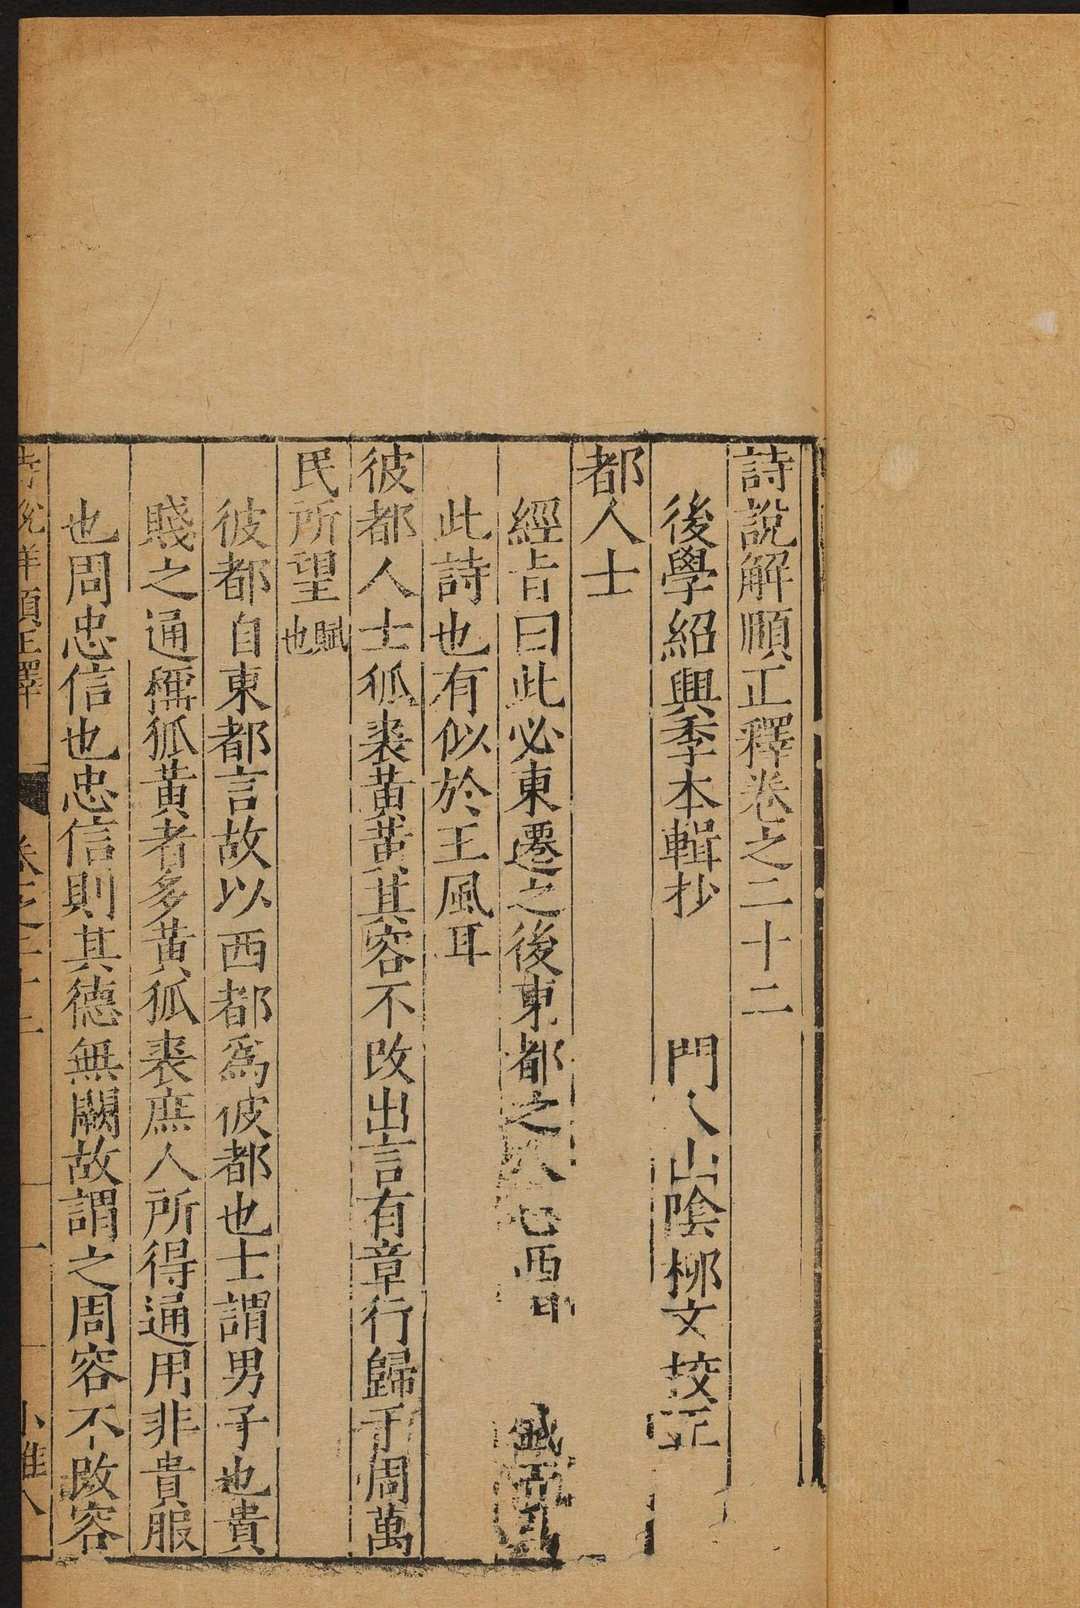 詩說解頤正釋卷之二十二
後學紹興季本輯抄　門人山陰柳文校正
都人士
經旨曰此必東遷之後東都之人心西
此詩也有似於王風耳
彼都人士狐裘黃黃其容不改出言有章行歸于周萬
民所望賦也
彼都自東都言故以西都爲彼都也士謂男子也貴
賤之通稱狐黃者多黃狐裘庶人所得通用非貴服
也周忠信也忠信則其德無闕故謂之周容不改容
詩說解頤正釋　卷之二十二　一　小雅八